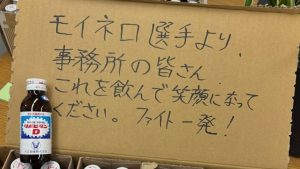 モイネロ選手より、
事務所の皆さん
これを飲んで笑顔になって
ください。ファイト一発！
リポビタン
D